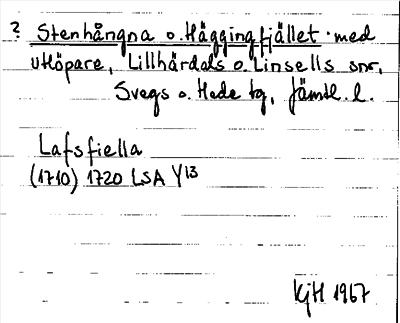 ? Stenhångna o. Häggingfjället med
utlöpare, Lillhärdals o. Linsells snr,
Svegs o. Hede tg, Jämtl. l.
Lafsfiella
(1710) 1720 LSA Y13
KjH 1967